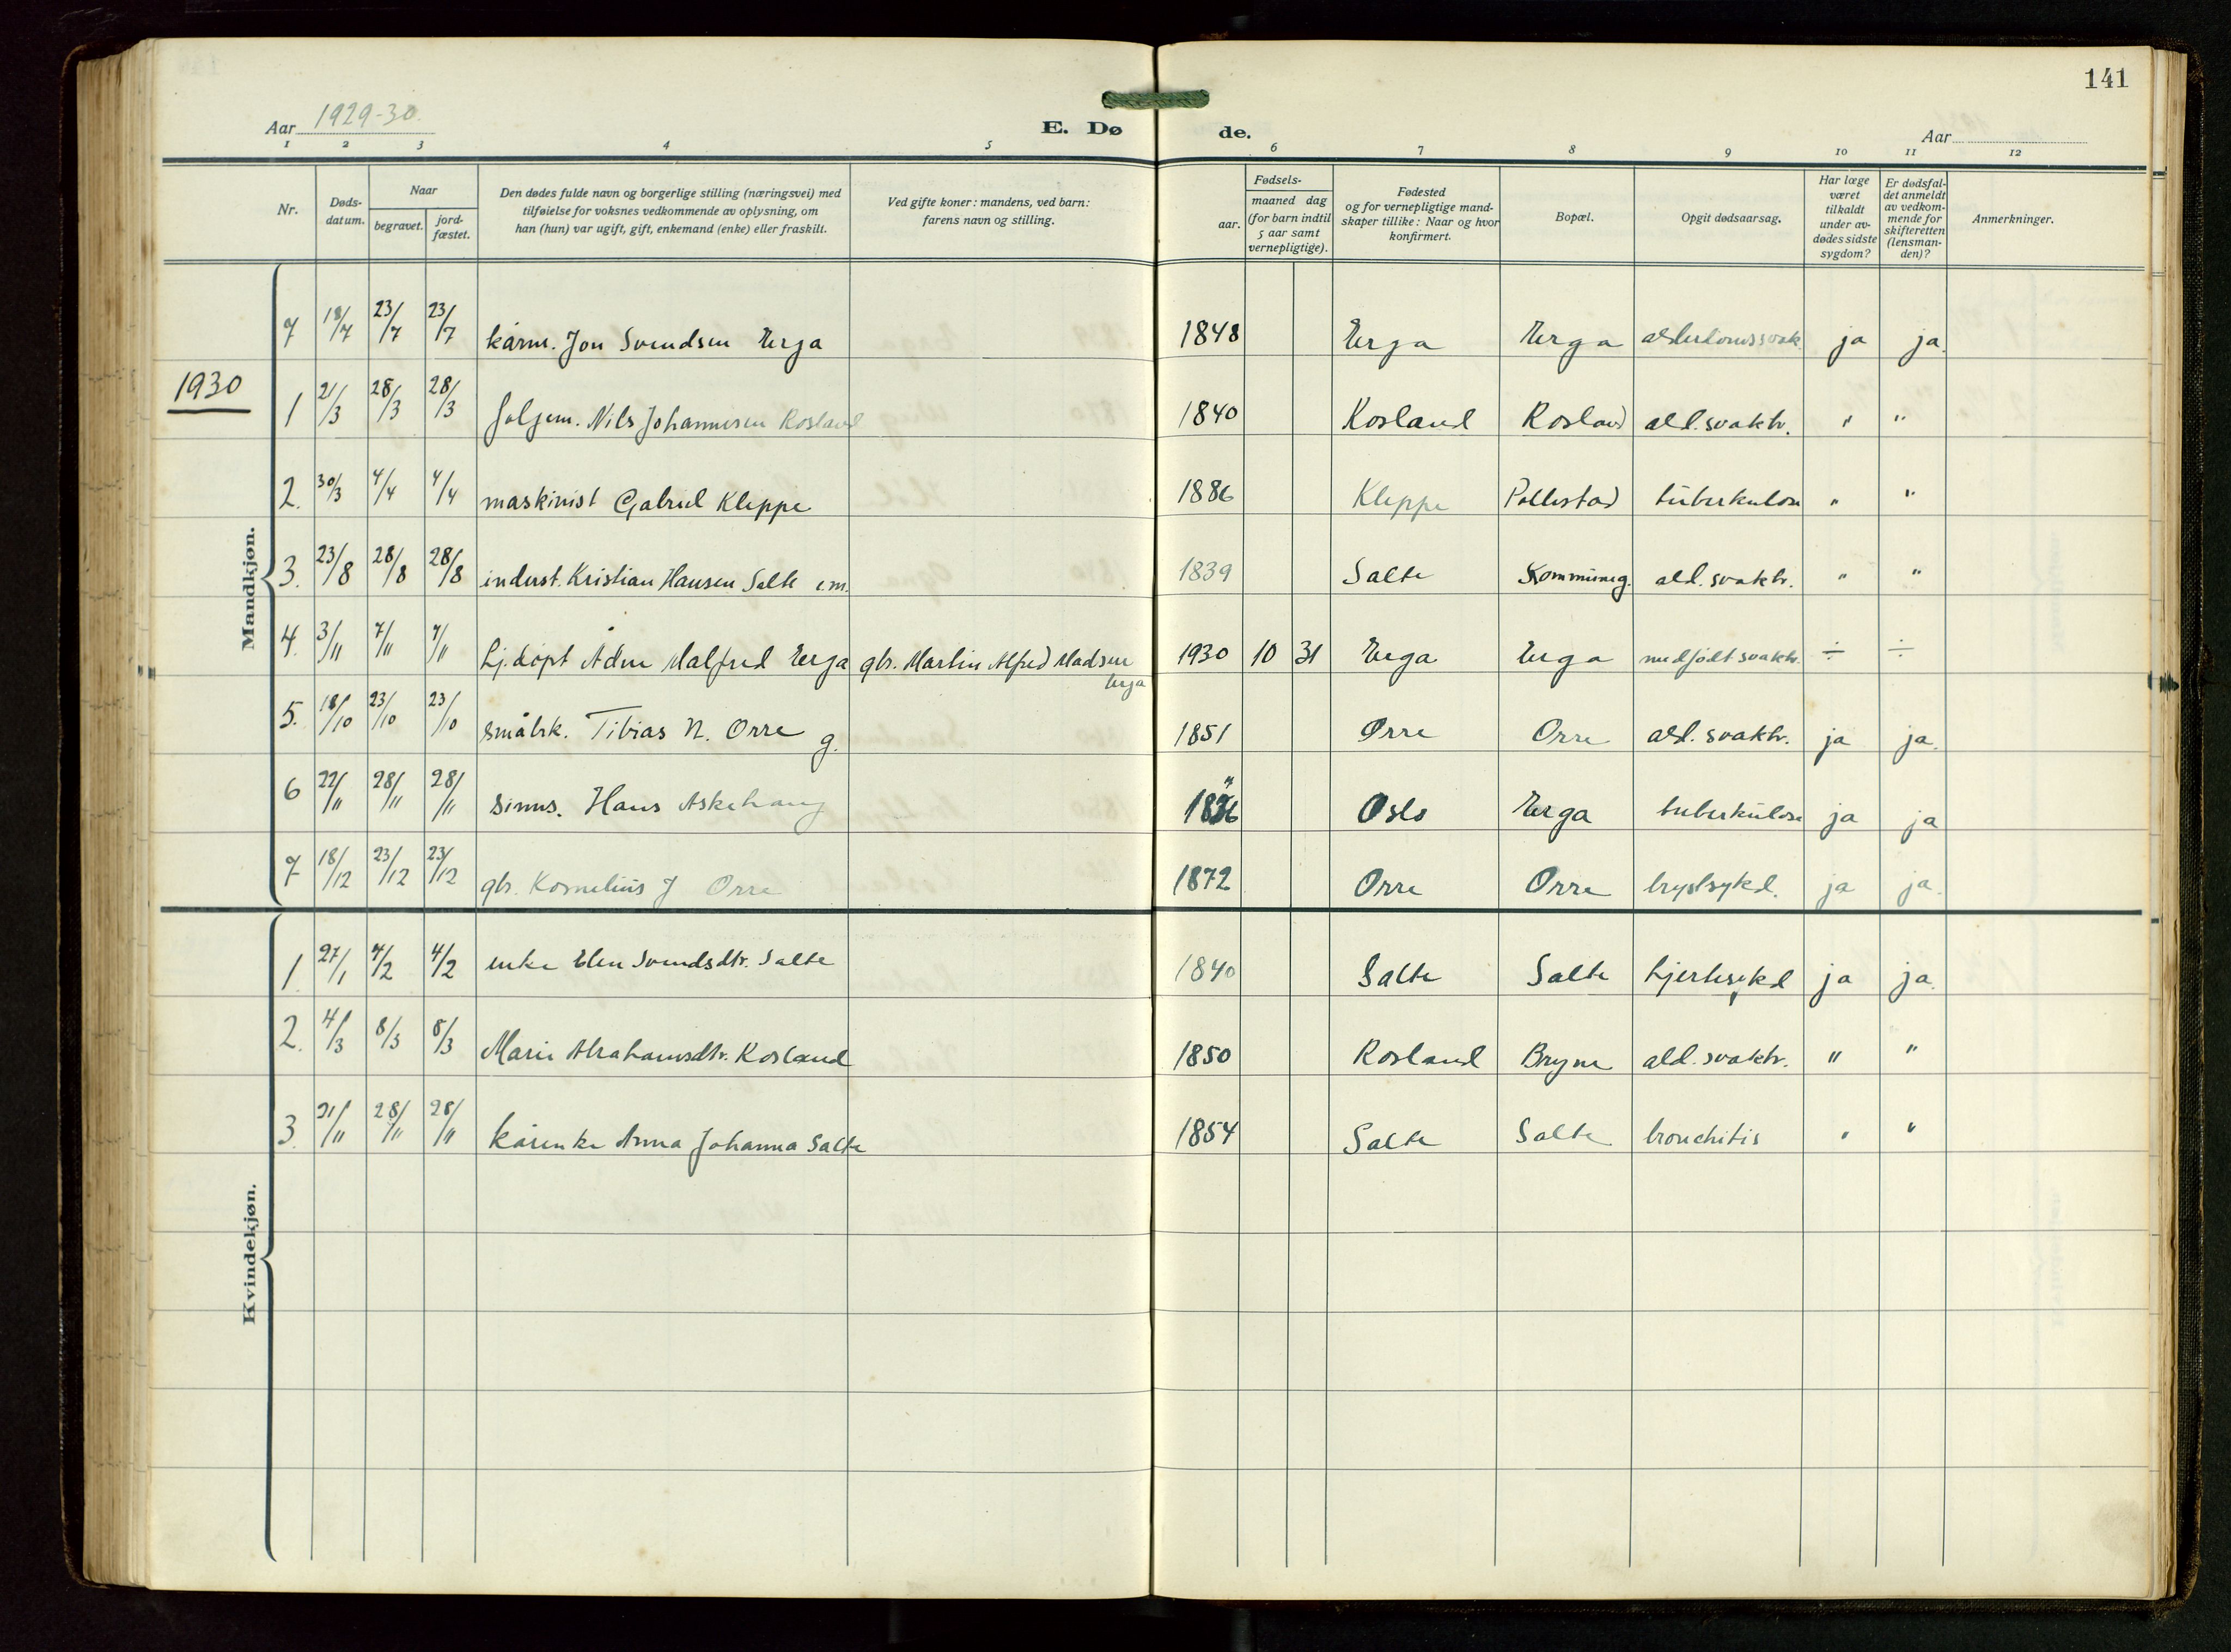 141
Aar 1929-30.
E. Dø de.
Aar
1 2 3 4 5 6 7 8 9 10 11 12
Nr.
Døds-datum.
Naar
begravet.
jord-fæstet.
Den dødes fulde navn og borgerlige stilling (næringsvei) med
tilføielse for voksnes vedkommende av oplysning, om
han (hun) var ugift, gift, enkemand (enke) eller fraskilt.
Ved gifte koner: mandens, ved barn:
farens navn og stilling.
Fødsels-
aar.
maaned dag
(for barn indtil
5 aar samt
vernepligtige).
Fødested
og for vernepligtige mand-
skaper tillike: Naar og hvor
konfirmert.
Bopæl.
Opgit dødsaarsag.
Har læge
været
tilkaldt
under av-
dødes sidste
sygdom?
Er dødsfal-
det anmeldt
av vedkom-
mende for
skifteretten
(lensman-
den)?
Anmerkninger.
Mandkjøn.
7 18/7 23/7 23/7 kårm. Jon Svendsen Erga 1848 Erga Erga alderdomssvak. ja ja.
1930
1 21/3 28/3 28/3 følgem. Nils Johannesen Rosland 1840 Rosland Rosland ald. svakh. " "
2. 30/3 4/4 4/4 maskinist Gabriel Kleppe 1886 Kleppe Pollestad tuberkulose " "
3. 23/8 28/8 28/8 inderst. Kristian Hansen Salte e.m. 1839 Salte Kommuneg. ald. svakh. " "
4. 3/11 7/11 7/11 hj.døpt Ådne Malfred Erga gbr. Martin Alfred Madsen Erga 1930 10 31 Erga Erga medfødt svakh. ÷ ÷
5. 18/10 23/10 23/10 småbrk. Tobias N. Orre g. 1851 Orre Orre ald. svakh. ja ja.
6 22/11 28/11 28/11 sinns. Hans Askehaug Oslo Erga tuberkulose ja ja
7 18/12 23/12 23/12 gbr. Kornelius J Orre 1872 Orre Orre brystsykd. ja ja.
Kvindekjøn.
1. 27/1 4/2 4/2 enke Elen Svendsdtr. Salte 1840 Salte Salte hjertesykd ja ja.
2. 4/3 8/3 8/3 Marie Abrahamsdtr. Rosland 1850 Rosland Bryne ald. svakh. " "
3. 21/11 28/11 28/11 kårenke Anna Johanna Salte 1854 Salte Salte bronchitis " "